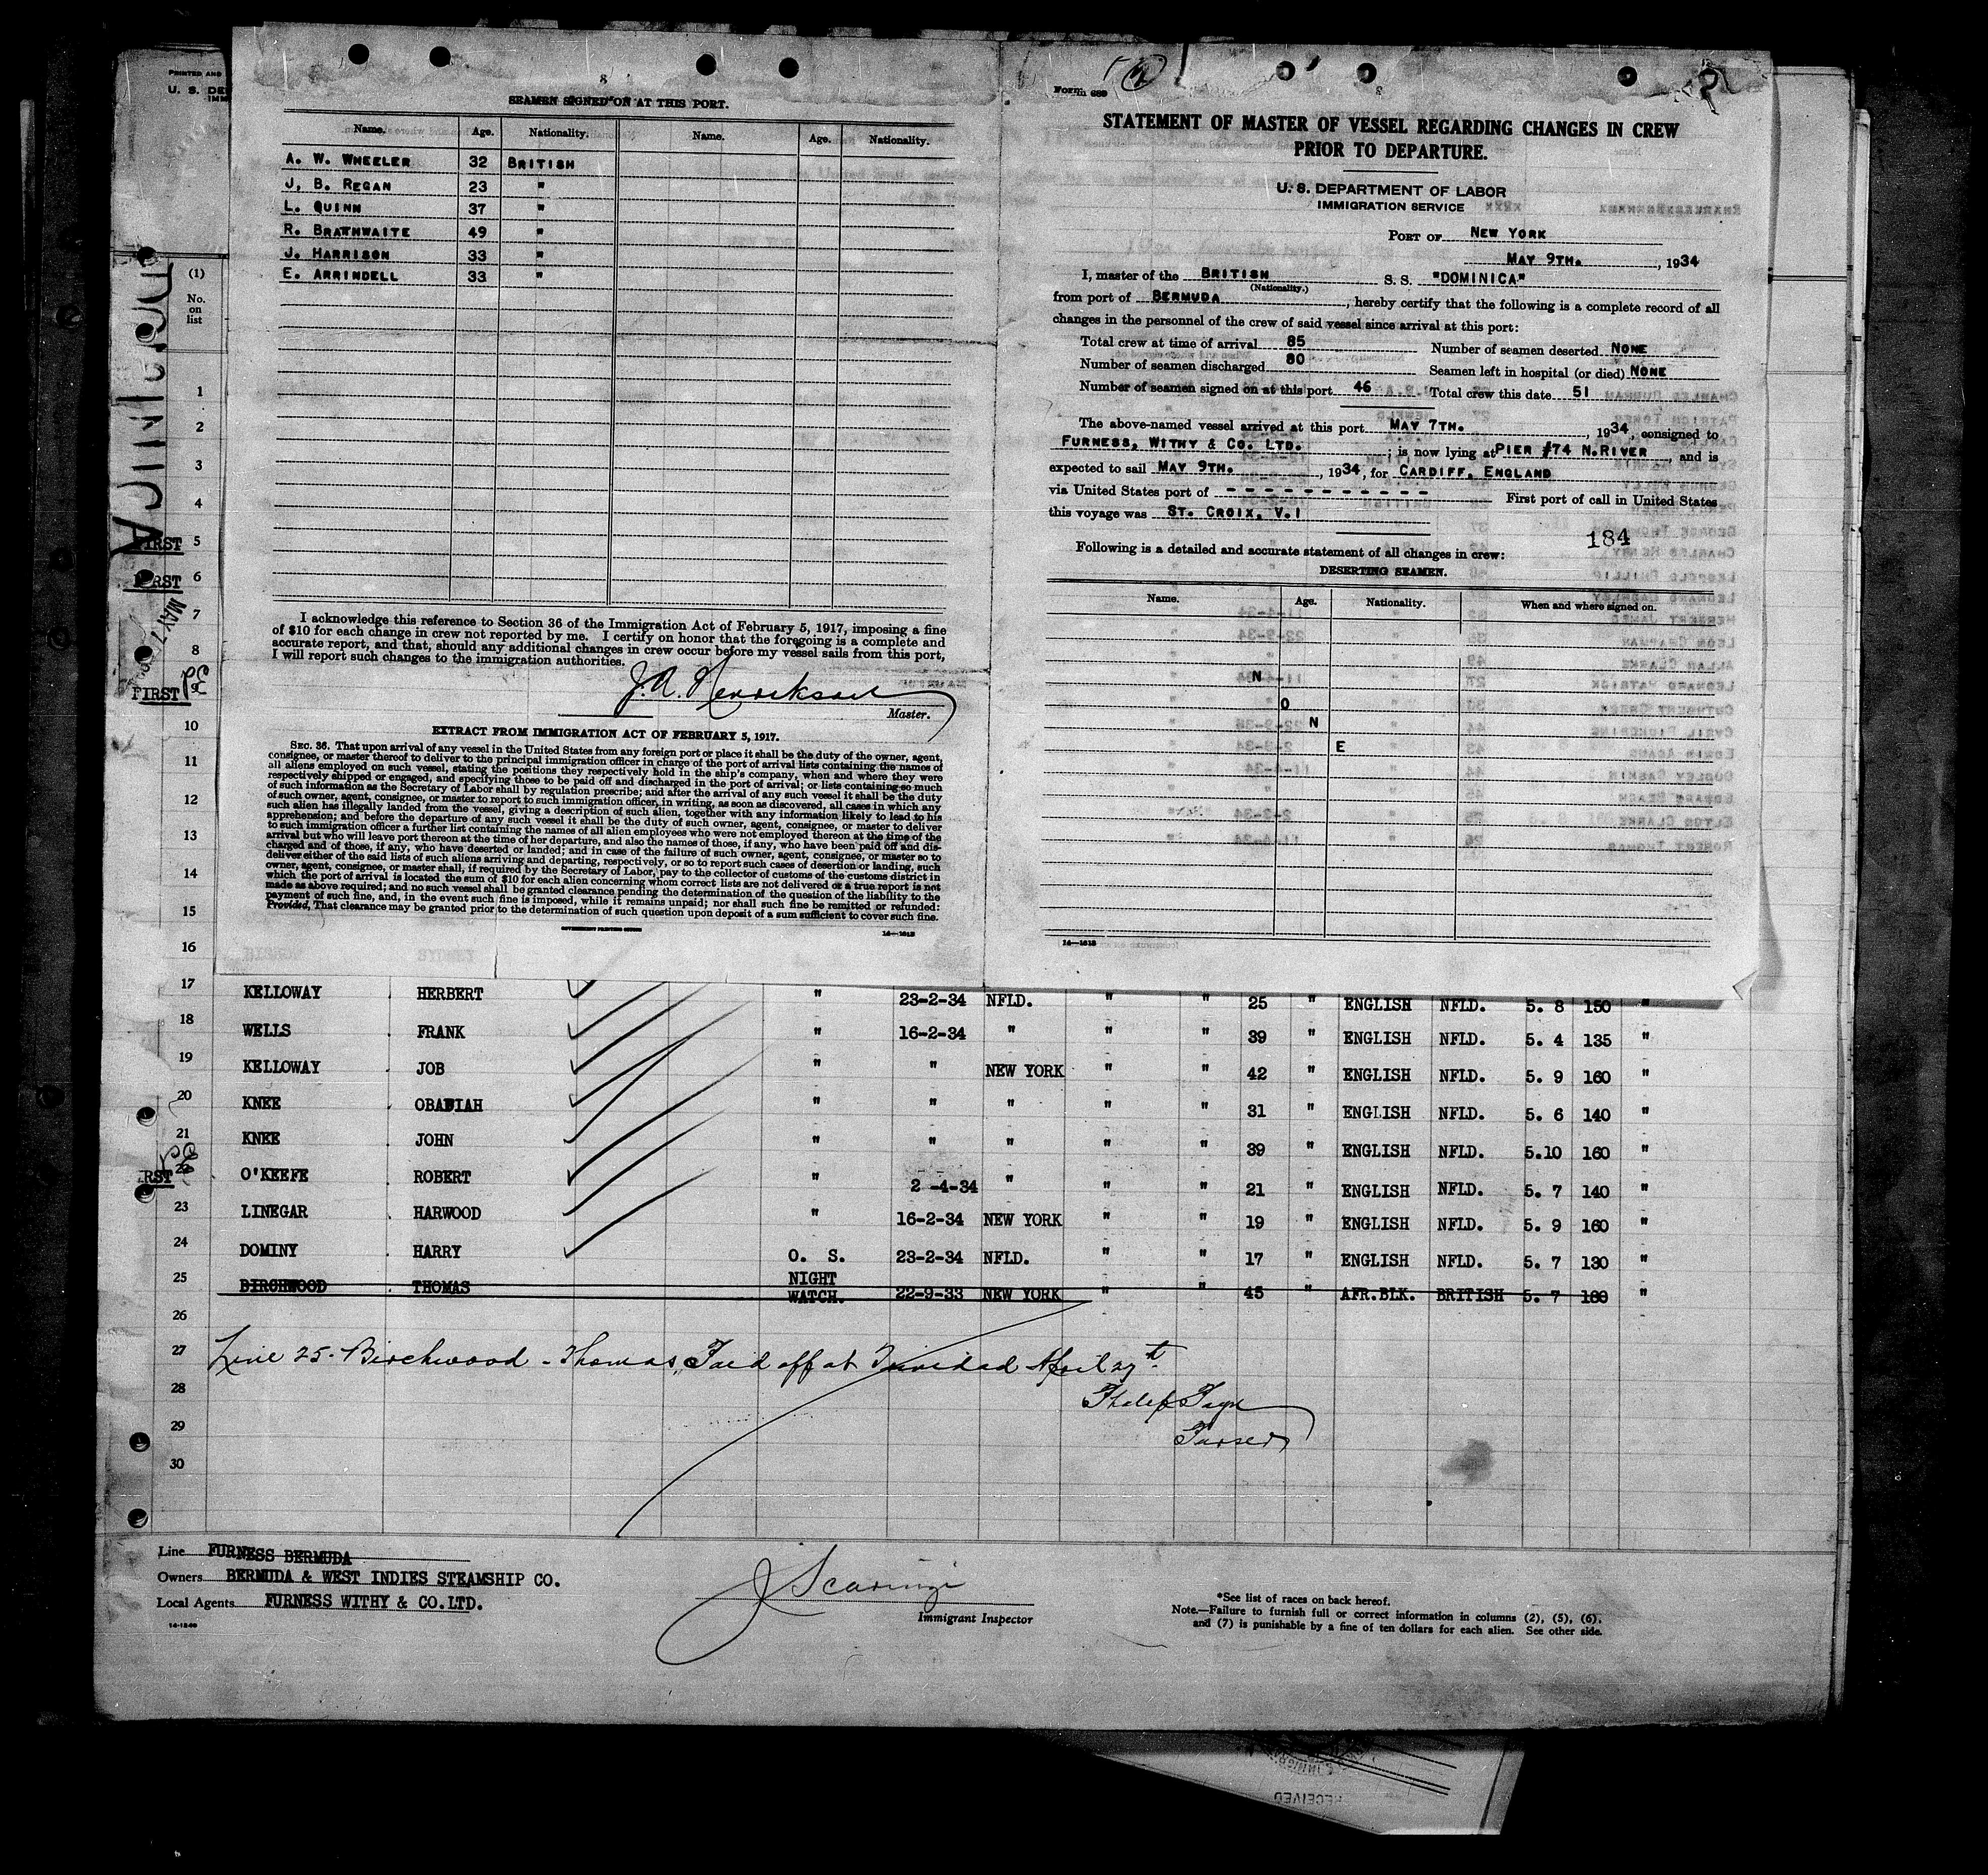 PRINTED AND
U. S. DE
IMM
SEAMEN SIGNED ON AT THIS PORT.
Name. Age. Nationality. Name. Age. Nationality.
A. W. WHEELER 32 BRITISH
J. B. REGAN 23 "
L. QUINN 37 "
R. BRATHWAITE 49 "
J. HARRISON 33 "
E. ARRINDELL 33 "
I acknowledge this reference to Section 36 of the Immigration Act of February 5, 1917, imposing a fine
of $10 for each change in crew not reported by me. I certify on honor that the foregoing is a complete and
accurate report, and that, should any additional changes in crew occur before my vessel sails from this port,
I will report such changes to the immigration authorities.
Master.
EXTRACT FROM IMMIGRATION ACT OF FEBRUARY 5, 1917.
SEC. 36. That upon arrival of any vessel in the United States from any foreign port or place it shall be the duty of the owner, agent,
consignee, or master thereof to deliver to the principal immigration officer in charge of the port of arrival lists containing the names of
all aliens employed on such vessel, stating the positions they respectively hold in the ship's company, when and where they were
respectively shipped or engaged, and specifying those to be paid off and discharged in the port of arrival; or lists containing so much
of such information as the Secretary of Labor shall by regulation prescribe; and after the arrival of any such vessel it shall be the duty
of such owner, agent, consignee, or master to report to such immigration officer, in writing, as soon as discovered, all cases in which any
such alien has illegally landed from the vessel, giving a description of such alien, together with any information likely to lead to his
apprehension; and before the departure of any such vessel it shall be the duty of such owner, agent, consignee, or master to deliver
to such immigration officer a further list containing the names of all alien employees who were not employed thereon at the time of the
arrival but who will leave port thereon at the time of her departure, and also the names of those, if any, who have been paid off and dis-
charged and of those, if any, who have deserted or landed; and in case of the failure of such owner, agent, consignee, or master so to
deliver either of the said lists of such aliens arriving and departing, respectively, or so to report such cases of desertion or landing, such
owner, agent, consignee, or master shall, if required by the Secretary of Labor, pay to the collector of customs of the customs district in
which the port of arrival is located the sum of $10 for each alien concerning whom correct lists are not delivered or a true report is not
made as above required; and no such vessel shall be granted clearance pending the determination of the question of the liability to the
payment of such fine, and, in the event such fine is imposed, while it remains unpaid; nor shall such fine be remitted or refunded:
Provided, That clearance may be granted prior to the determination of such question upon deposit of a sum sufficient to cover such fine.
GOVERNMENT PRINTING OFFICE 14—1618
Form 689
STATEMENT OF MASTER OF VESSEL REGARDING CHANGES IN CREW
PRIOR TO DEPARTURE.
U. S. DEPARTMENT OF LABOR
IMMIGRATION SERVICE
PORT OF NEW YORK
MAY 9TH. , 1934
I, master of the BRITISH S. S. "DOMINICA"
(Nationality.)
from port of BERMUDA , hereby certify that the following is a complete record of all
changes in the personnel of the crew of said vessel since arrival at this port:
Total crew at time of arrival 85 Number of seamen deserted NONE
Number of seamen discharged 80 Seamen left in hospital (or died) NONE
Number of seamen signed on at this port 46 Total crew this date 51
The above-named vessel arrived at this port MAY 7TH. , 1934, consigned to
FURNESS, WITHY & CO. LTD. ; is now lying at PIER #74 N.RIVER , and is
expected to sail MAY 9TH. , 1934, for CARDIFF, ENGLAND
via United States port of - - - - - - - - - - - First port of call in United States
this voyage was ST. CROIX, V.I
184
Following is a detailed and accurate statement of all changes in crew:
DESERTING SEAMEN.
Name. Age. Nationality. When and where signed on.
N
O
N
E
14—1618
(1)
No.
on
list
DOMINICA
MAY 7
1
2
3
4
FIRST 5
FIRST 6
7
8
FIRST 9
10
11
12
13
14
15
16
17 KELLOWAY . HERBERT " 23-2-34 NFLD. " " 25 " ENGLISH NFLD. 5. 8 150 "
18 WELLS . FRANK " 16-2-34 " " " 39 " ENGLISH NFLD. 5. 4 135 "
19 KELLOWAY . JOB " " NEW YORK " " 42 " ENGLISH NFLD. 5. 9 160 "
20 KNEE . OBADIAH " " " " " 31 " ENGLISH NFLD. 5. 6 140 "
21 KNEE . JOHN " " " " " 39 " ENGLISH NFLD. 5.10 160 "
22 O'KEEFE . ROBERT " 2 -4-34 " " " 21 " ENGLISH NFLD. 5. 7 140 "
23 LINEGAR . HARWOOD " 16-2-34 NEW YORK " " 19 " ENGLISH NFLD. 5. 9 160 "
24 DOMINY . HARRY O. S. 23-2-34 NFLD. " " 17 " ENGLISH NFLD. 5. 7 130 "
25 BIRCHWOOD . THOMAS NIGHT WATCH. 22-9-33 NEW YORK " " 45 " AFR.BLK. BRITISH 5. 7 180 "
26
27 Line 25. Birchwood - Thomas, Paid off at Trinidad April 27th.
28
29 Purser
30
Line FURNESS BERMUDA
Owners BERMUDA & WEST INDIES STEAMSHIP CO.
Local Agents FURNESS WITHY & CO.LTD.
14-1240
Immigrant Inspector
*See list of races on back hereof.
Note.—Failure to furnish full or correct information in columns (2), (5), (6),
and (7) is punishable by a fine of ten dollars for each alien. See other side.
RECEIVED